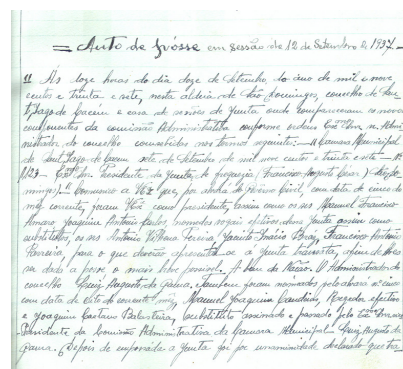 = Auto de pósse em sessão de 12 de Setembro de 1937. =
Ás doze horas do dia doze de Setembro, do ano de mil e nove
centos e trinta e sete, nesta aldeia de São Domingos, concelho de San
t'Iago de Cacém e casa de sessões da Junta, onde compareceram os novos
componentes da comissão Administrativa conforme ordem Exmo Snr. Admi
nistrador do concelho concebidas nos termos seguintes: — Camara Municipal
de Sant'Iago de Cacem sete de Setembro de mil nove centos e trinta e sete — Nº
Exmo Snr. Presidente da Junta de freguezia Francisco
mingos). Comunico a V. Exª que, por alvará do Governo Civil, com data de cinco do
mez corrente, foram V. Exª como presidente, assim como os srs Manuel Francisco
Amaro Joaquim António nomados vogais efetivos dessa Junta assim como
substitutos, os srs Antonio Ferreira, Jacinto Inácio Braz, Francisco António
Parreira, para o que deverão apresentar-se á Junta transacta, afim de lhes
ser dada a posse o mais breve possivel. A bem da Nação. O Administrador do
concelho Luiz Augusto da Gama. Tambem foram nomados pelo alvará
com data de oito do corrente mez, Manuel Joaquim Candeias, Regedor efetivo
e Joaquim Caetano substituto assinado e passado pelo
Presidente da Comissão Administrativa da Camara Municipal Luiz Augusto da
Gama. Depois de empossada a Junta foi por unanimidade declarado que